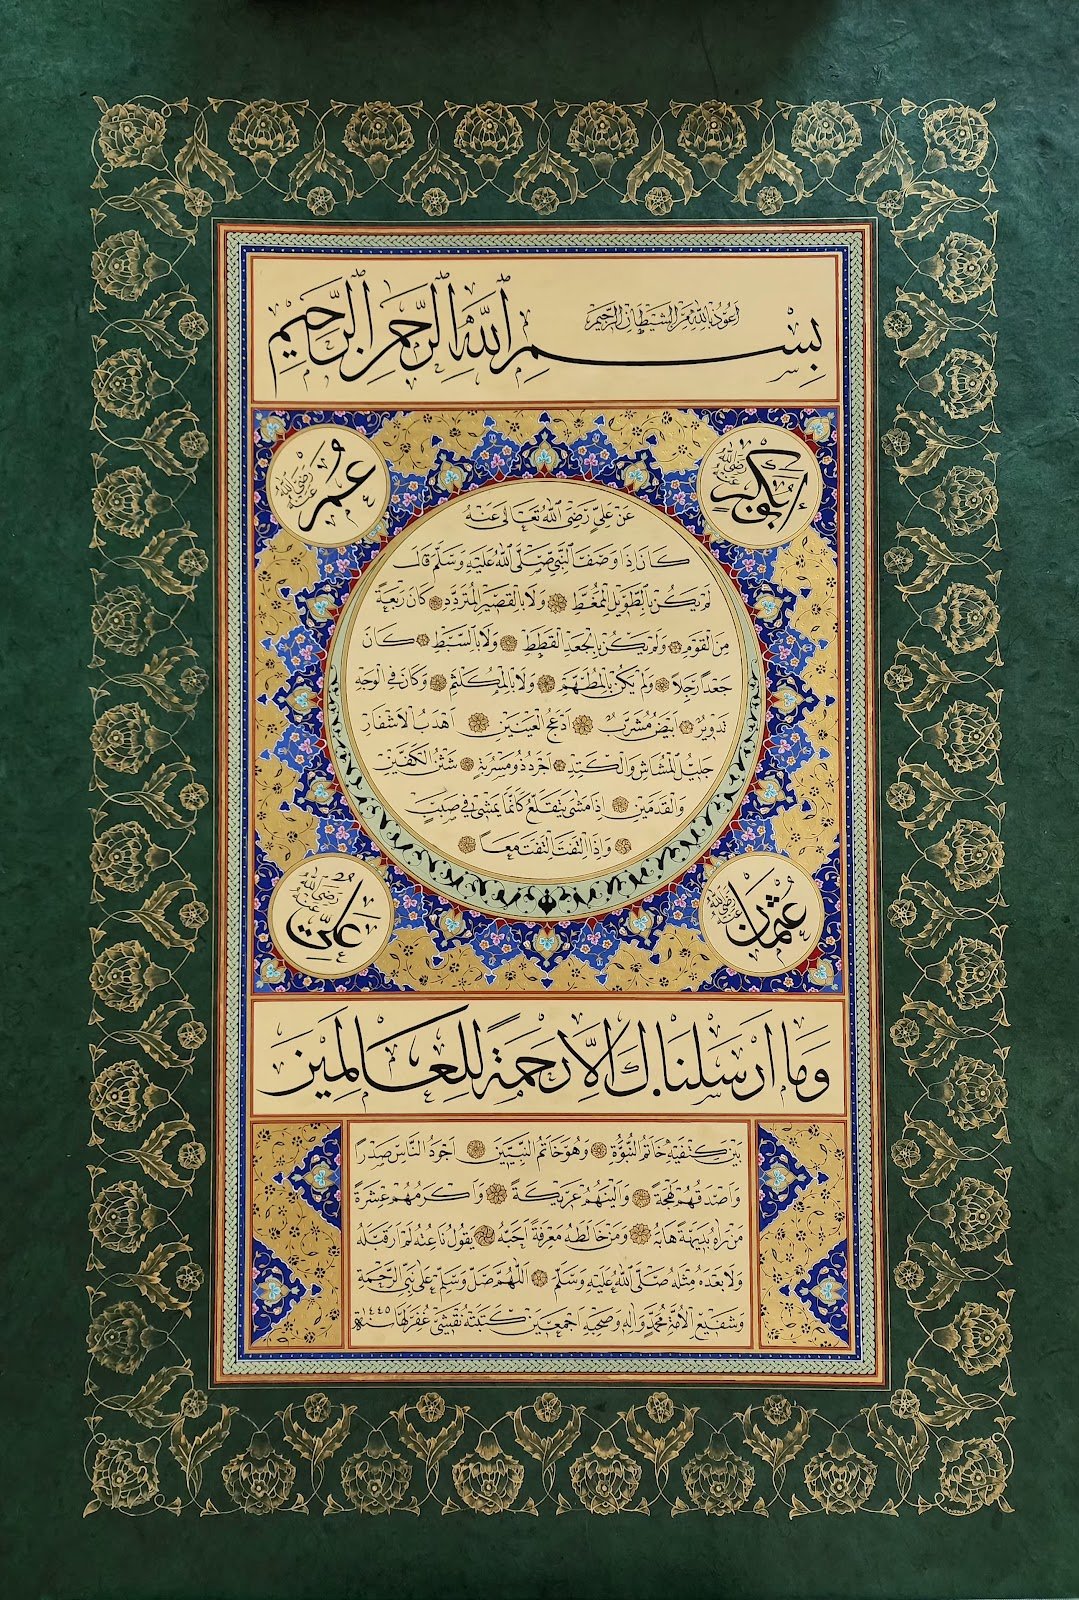 اعوذ بالله من الشيطان الرجيم
بِسْمِ اللّٰهِ الرَّحْمٰنِ الرَّحِيمِ
ابوبكر رضي الله عنه
عمر رضي الله عنه
عَنْ عَلِيٍّ رَضِيَ اللهُ تَعَالَى عَنْهُ
كَانَ اِذَا وَصَفَ النَّبِيَّ صَلَّى اللهُ عَلَيْهِ وَسَلَّمَ قَالَ
لَمْ يَكُنْ بِالطَّوِيلِ الْمُمَّغِطِ وَلَا بِالْقَصِيرِ الْمُتَرَدِّدِ كَانَ رَبْعَةً
مِنَ الْقَوْمِ وَلَمْ يَكُنْ بِالْجَعْدِ الْقَطَطِ وَلَا بِالسَّبْطِ كَانَ
جَعْدًا رَجِلًا وَلَمْ يَكُنْ بِالْمُطَهَّمِ وَلَا بِالْمُكَلْثَمِ وَكَانَ فِي الْوَجْهِ
تَدْوِيرٌ اَبْيَضُ مُشْرَبٌ اَدْعَجُ الْعَيْنَيْنِ اَهْدَبُ الْاَشْفَارِ
جَلِيلُ الْمُشَاشِ وَالْكَتِدِ اَجْرَدُ ذُو مَسْرُبَةٍ شَثْنُ الْكَفَّيْنِ
وَالْقَدَمَيْنِ اِذَا مَشَى يَتَقَلَّعُ كَاَنَّمَا يَمْشِي فِي صَبَبٍ
وَاِذَا الْتَفَتَ الْتَفَتَ مَعًا
عثمان رضي الله عنه
علي رضي الله عنه
وَمَا اَرْسَلْنَاكَ اِلَّا رَحْمَةً لِلْعَالَمِينَ
بَيْنَ كَتِفَيْهِ خَاتَمُ النُّبُوَّةِ وَهُوَ خَاتَمُ النَّبِيِّينَ اَجْوَدُ النَّاسِ صَدْرًا
وَاَصْدَقُهُمْ لَهْجَةً وَاَلْيَنُهُمْ عَرِيكَةً وَاَكْرَمُهُمْ عِشْرَةً
مَنْ رَاٰهُ بَدِيهَةً هَابَهُ وَمَنْ خَالَطَهُ مَعْرِفَةً اَحَبَّهُ يَقُولُ نَاعِتُهُ لَمْ اَرَ قَبْلَهُ
وَلَا بَعْدَهُ مِثْلَهُ صَلَّى اللهُ عَلَيْهِ وَسَلَّمَ اَللّٰهُمَّ صَلِّ وَسَلِّمْ عَلَى نَبِيِّ الرَّحْمَةِ
وَشَفِيعِ الْاُمَّةِ مُحَمَّدٍ وَاٰلِهِ وَصَحْبِهِ اَجْمَعِينَ كَتَبَتْهُ غُفِرَ لَهَا سنة ١٤٤٥